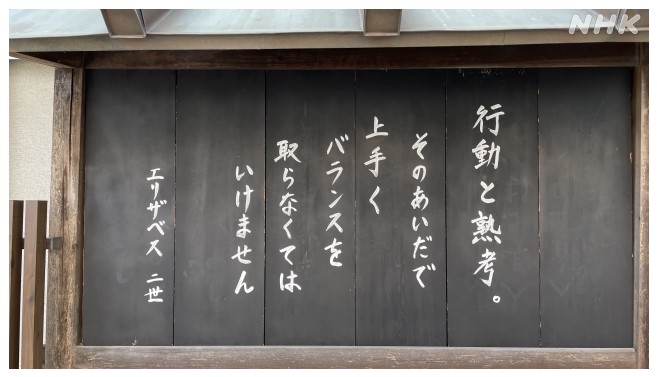 NHK
行動と熟考。
そのあいだで
上手く
バランスを
取らなくては
いけません
エリザベス 二世